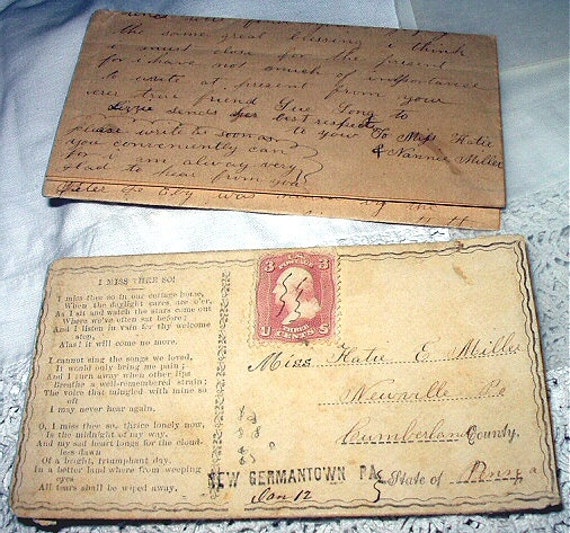 the same great blessing i think
i must close for the present
for i have not much of importance
to write at present from your
ever true friend Sue Long to
Lizzie sends her best respects
to you To Miss Katie
& Nannie Miller
please write as soon as
you conveniently can
for i am alway very
glad to hear from you
I MISS THEE SO!
I miss thee so in our cottage home,
When the daylight cares are o'er,
As I sit and watch the stars come out
Where we've often sat before;
And I listen in vain for thy welcome
step,
Alas! it will come no more.
I cannot sing the songs we loved,
It would only bring me pain;
And I turn away when other lips
Breathe a well-remembered strain;
The voice that mingled with mine so
oft
I may never hear again.
O, I miss thee so, thrice lonely now,
In the midnight of my way,
And my sad heart longs for the cloud-
less dawn
Of a bright, triumphant day.
In a better land where from weeping
eyes
All tears shall be wiped away.
3 U.S. 3
POSTAGE
U THREE S
CENTS
Miss Katie E Miller
Newville Po
Cumberland County.
State of Penna
NEW GERMANTOWN PA
Jan 12